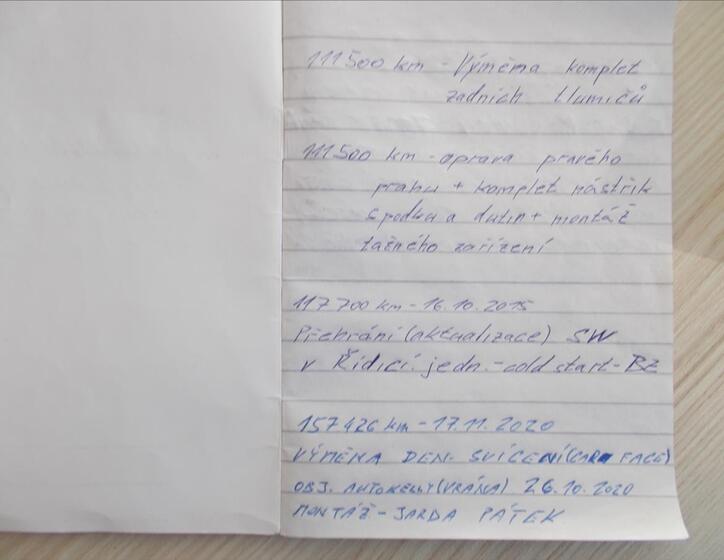 111 500 km - Výměna komplet
zadních tlumičů
111 500 km - oprava pravého
prahu + komplet nástřik
spodku a dutin + montáž
tažného zařízení
117 700 km - 16.10.2015
Přehrání (aktualizace) SW
v Řídicí jedn. - cold start - BZ
157 426 km - 17.11.2020
VÝMĚNA DEN. SVÍCENÍ (CAR FACE)
OBJ. AUTOKELLY (VRÁNA) 26.10.2020
MONTÁŽ - JARDA PÁTEK